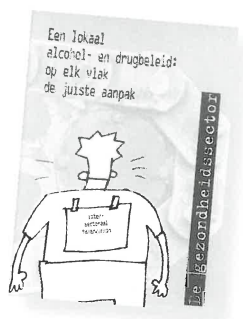 Een lokaal
alcohol- en drugbeleid:
op elk vlak
de juiste aanpak
De gezondheidssector